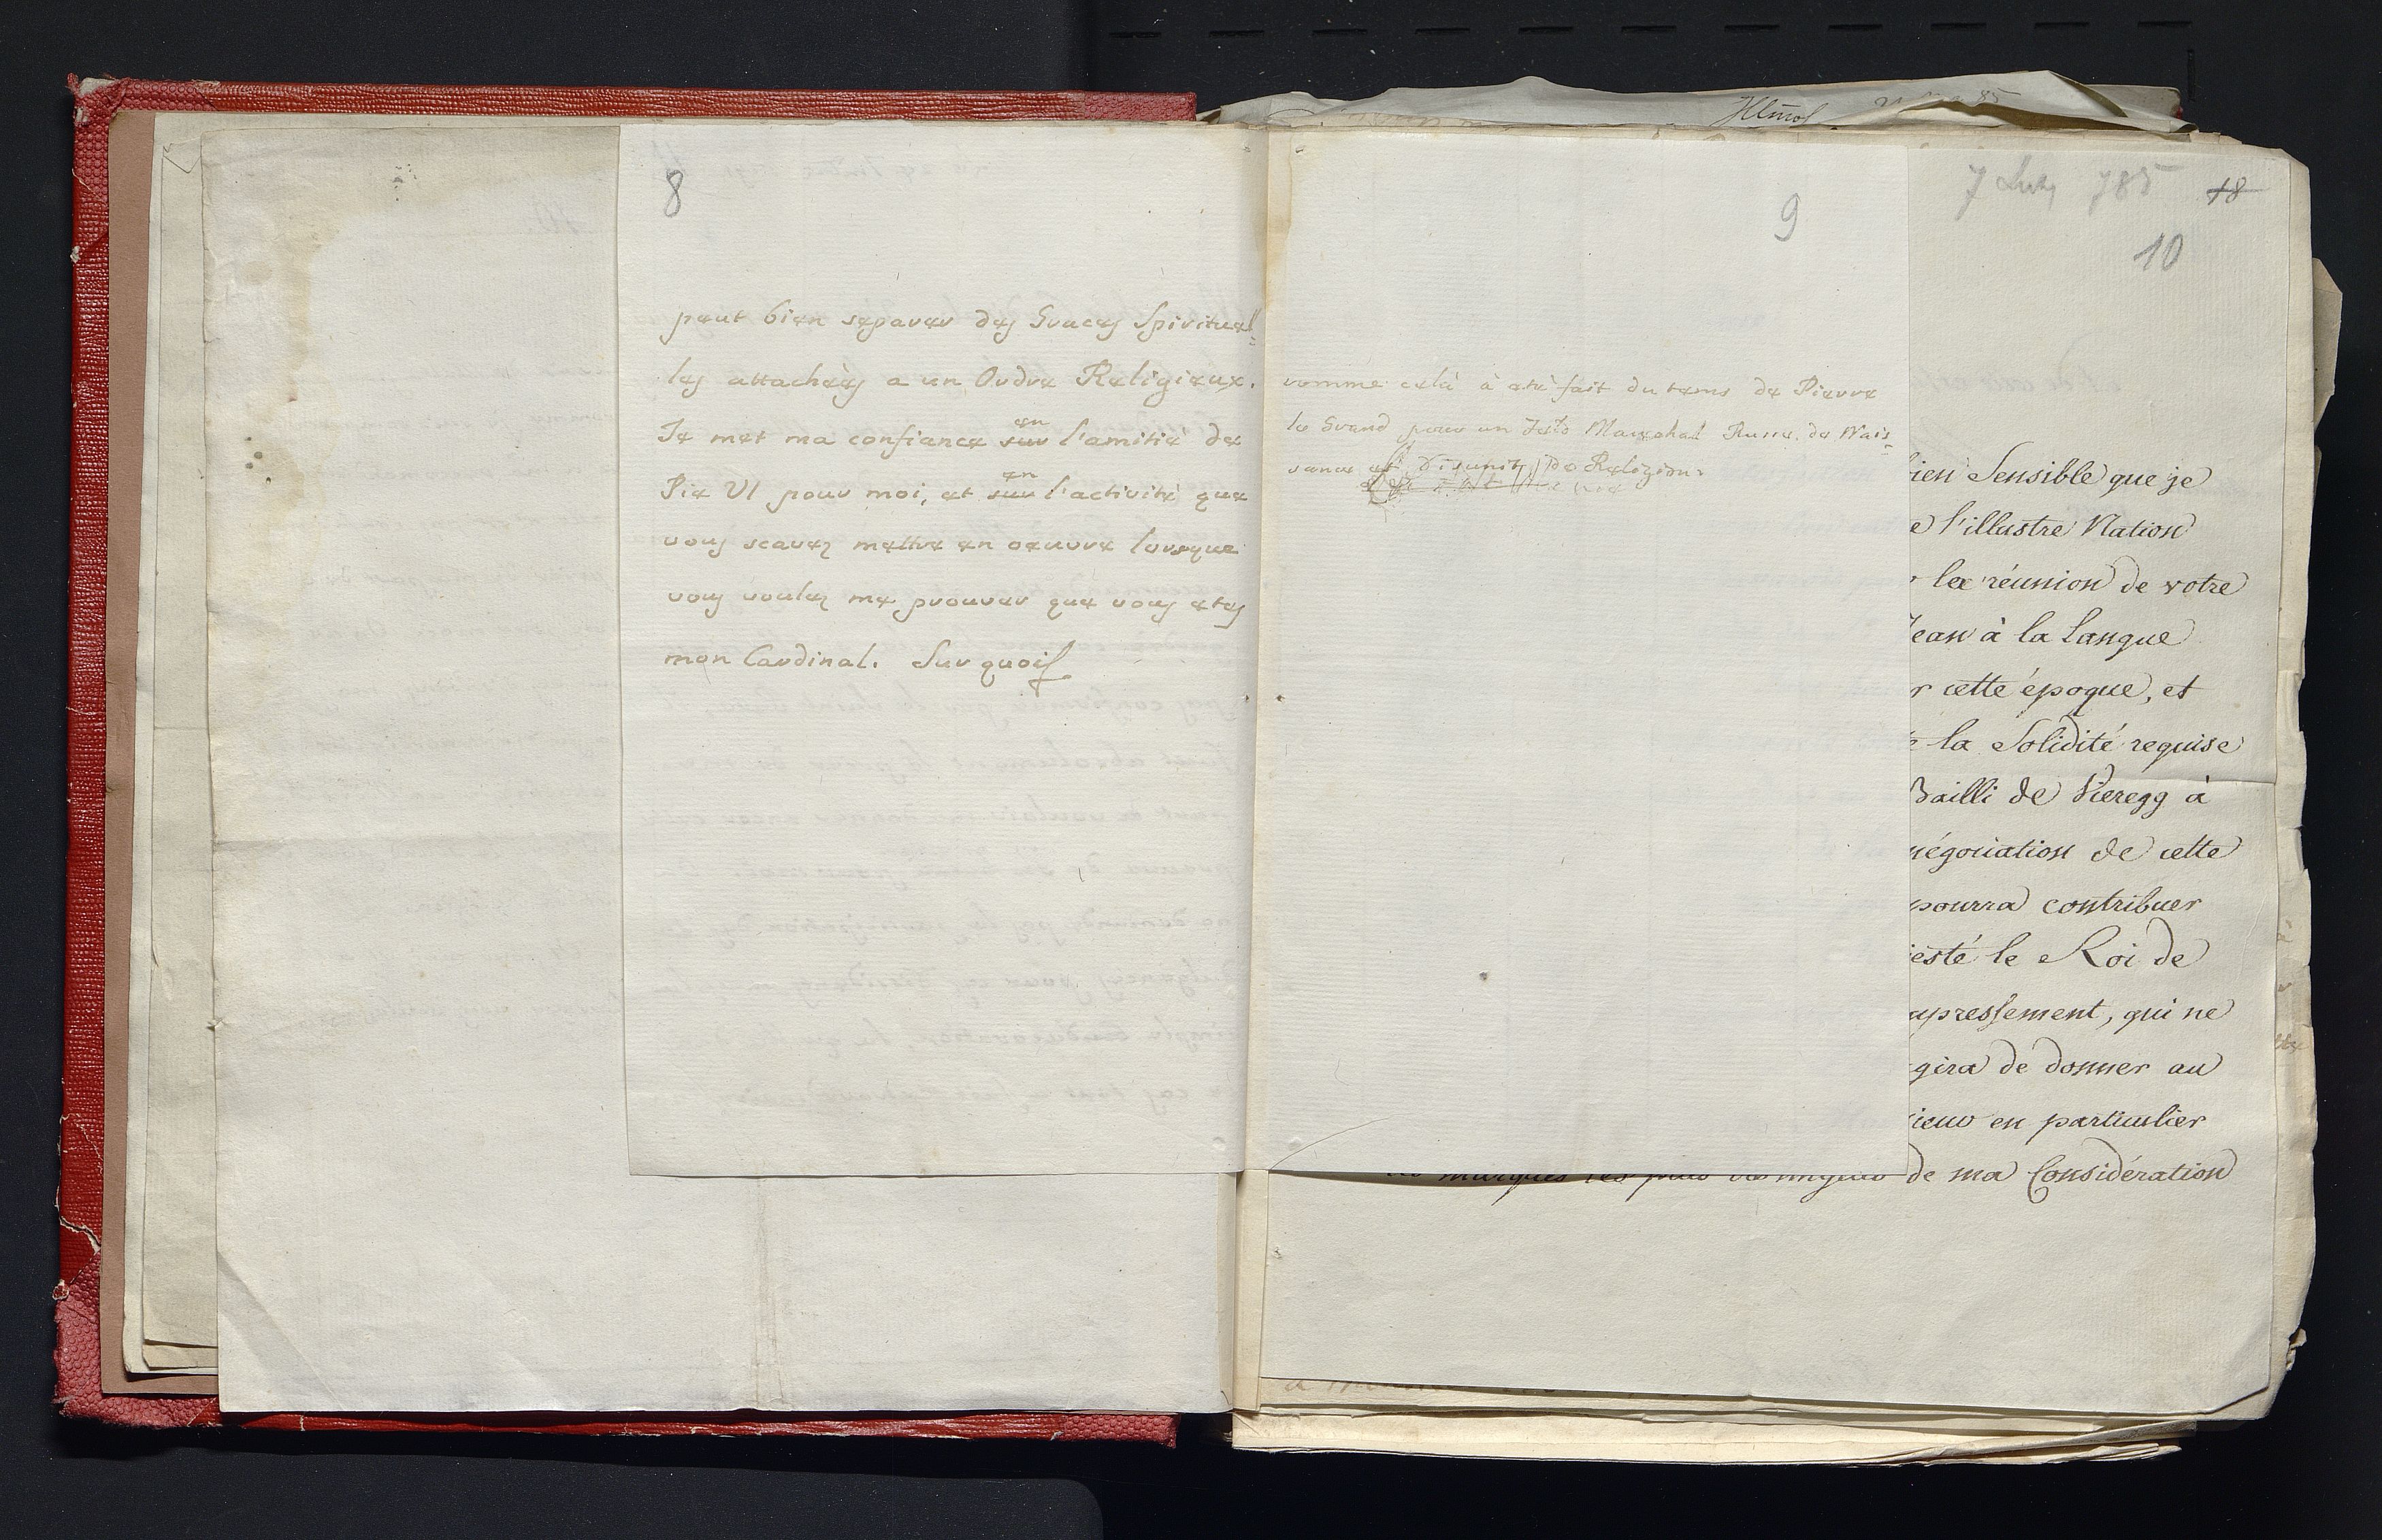 8
peut bien separer des Graces Spirituel=
les attachées a un Ordre Religieux.
Je met ma confiance sur en l'amitié de
Pie VI pour moi, et sur en l'activité que
vous scavez mettre en oeuvre lorsque
vous voulez me prouver que vous etes
mon Cardinal. Sur quoi
9
comme celà à eté fait du tems de Pierre
le Grand pour un Marechal Russe de Nais=
sance et de Religion.
7 785 18
10
bien Sensible que je
e l'illustre Nation
r la réunion de votre
Jean à la Langue
r cette époque, et
la Solidité requise
Bailli de Vieregg à
négociation de cette
pourra contribuer
jesté le Roi de
mpressement, qui ne
gira de donner au
ieur en particulier
les marques les plus de ma Considération